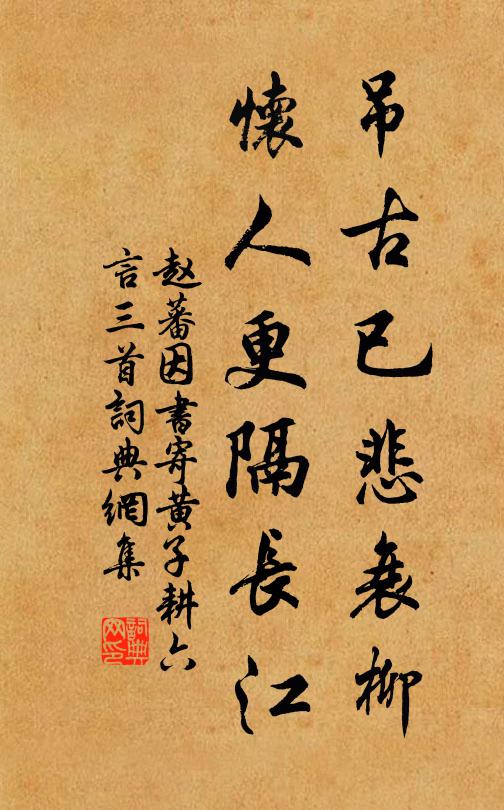 吊古已悲衰柳
懷人更隔長江
赵蕃因書寄黃子耕六
言三首詞典網集
詞典
网印